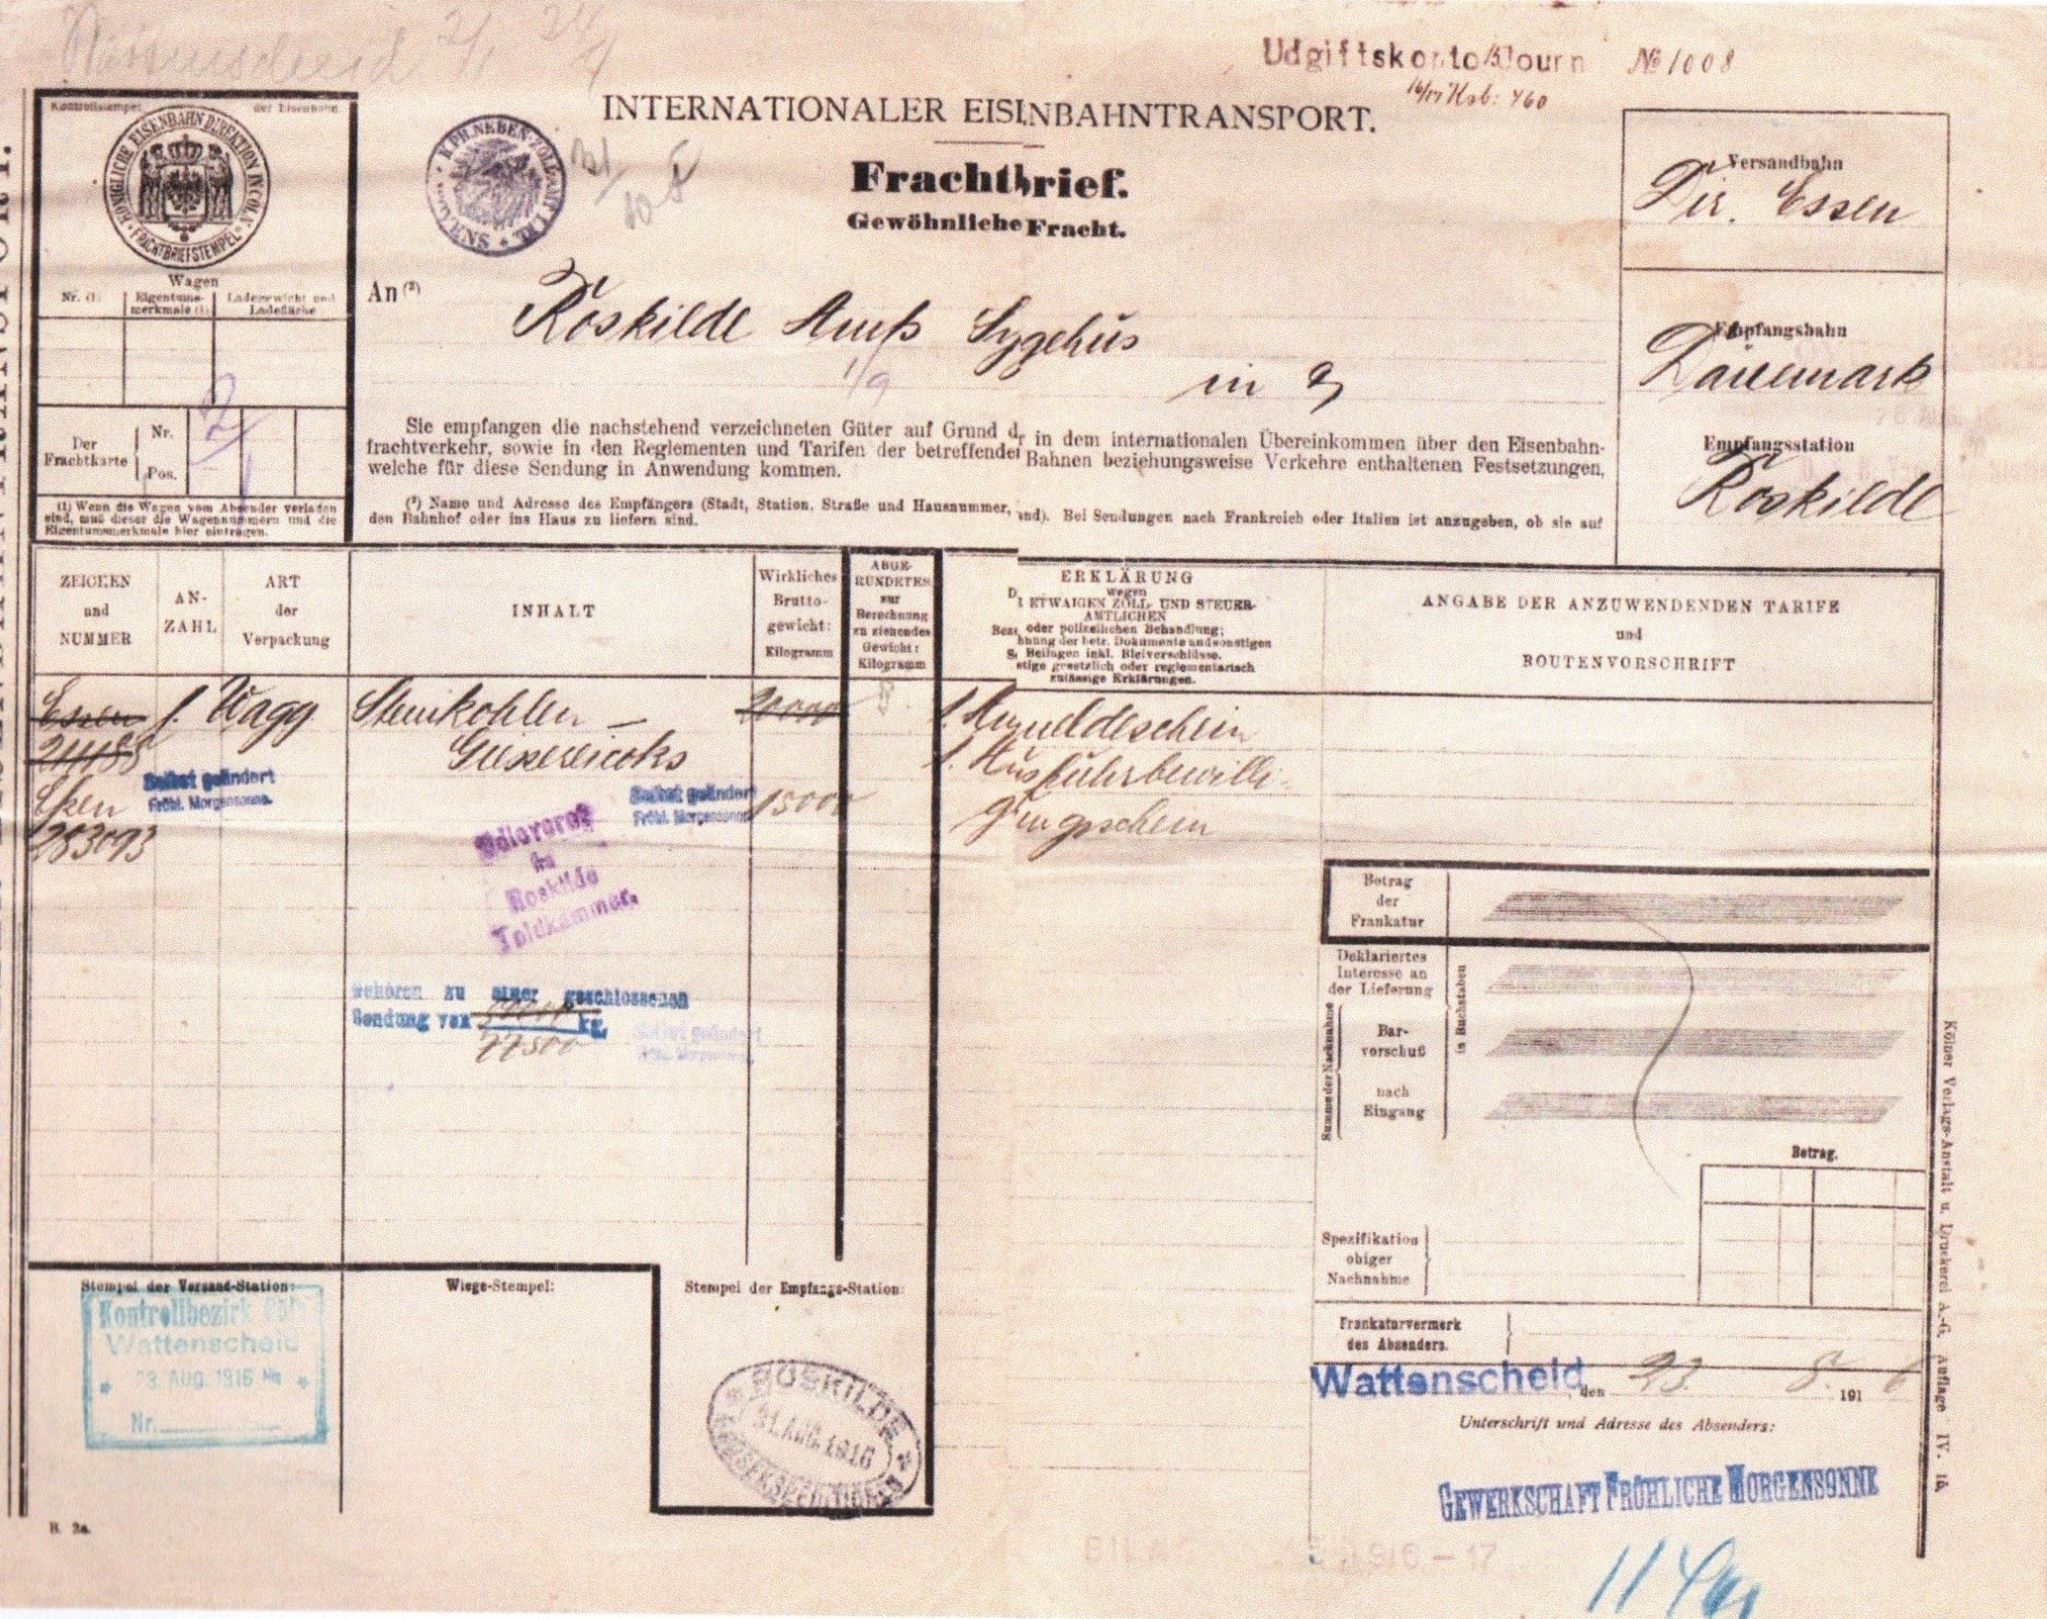 Udgiftskonto Journ № 1008
Kontrollstempel der Eisenbahn
KÖNIGLICHE EISENBAHN DIREKTION IN CÖLN
FRACHTBRIEFSTEMPEL
INTERNATIONALER EISENBAHNTRANSPORT.
Frachtbrief.
Gewöhnliche Fracht.
Versandbahn
Dir. Essen
Empfangsbahn
Dänemark
Empfangsstation
Roskilde
Wagen
Nr. (1)
Eigentums-merkmale (1)
Ladegewicht und Ladefläche
Der Frachtkarte
Nr.
Pos.
(1) Wenn die Wagen vom Absender verladen
sind, muß dieser die Wagennummern und die
Eigentumsmerkmale hier eintragen.
An (²)
Roskilde Amts Sygehus
in
Sie empfangen die nachstehend verzeichneten Güter auf Grund der in dem internationalen Übereinkommen über den Eisenbahn-
frachtverkehr, sowie in den Reglementen und Tarifen der betreffenden Bahnen beziehungsweise Verkehre enthaltenen Festsetzungen,
welche für diese Sendung in Anwendung kommen.
(²) Name und Adresse des Empfängers (Stadt, Station, Straße und Hausnummer, Land). Bei Sendungen nach Frankreich oder Italien ist anzugeben, ob sie auf
den Bahnhof oder ins Haus zu liefern sind.
ZEICHEN
und
NUMMER
AN-
ZAHL
ART
der
Verpackung
INHALT
Wirkliches
Brutto-
gewicht:
Kilogramm
ABGE-
RUNDETES
zur
Berechnung
zu ziehendes
Gewicht:
Kilogramm
ERKLÄRUNG
wegen
ETWAIGEN ZOLL- UND STEUER-
AMTLICHEN
oder polizeilichen Behandlung;
Bezeichnung der betr. Dokumente und sonstigen
Beilagen inkl. Bleiverschlüsse.
Sonstige gesetzlich oder reglementarisch
zulässige Erklärungen.
ANGABE DER ANZUWENDENDEN TARIFE
und
ROUTENVORSCHRIFT
Essen 1. Wagg. Steinkohlen – 20000
Giessereicoks
Selbst geändert
Fröhl. Morgensonne.
Essen
283093
Selbst geändert
Fröhl. Morgensonne
15000
1. Anmeldeschein
1. Ausfuhrbewilli-
gungsschein
fra
Roskilde
Toldkammer.
Gehören zu einer geschlossenen
Sendung von kg.
77500
Selbst geändert
Betrag
der
Frankatur
Deklariertes
Interesse an
der Lieferung
in Buchstaben
Summe der Nachnahme
Bar-
vorschuß
nach
Eingang
Betrag.
Spezifikation
obiger
Nachnahme
Frankaturvermerk
des Absenders.
Stempel der Versand-Station:
Kontrollbezirk Cöln
Wattenscheid
23. AUG. 1916
Nr.
Wiege-Stempel:
Stempel der Empfangs-Station:
ROSKILDE
31. AUG. 1916
Wattenscheid, den 23. 8. 1916
Unterschrift und Adresse des Absenders:
GEWERKSCHAFT FRÖHLICHE MORGENSONNE
Kölner Verlags-Anstalt u. Druckerei A.-G. Auflage IV. 15.
B. 2a.
BILAG 1916-17